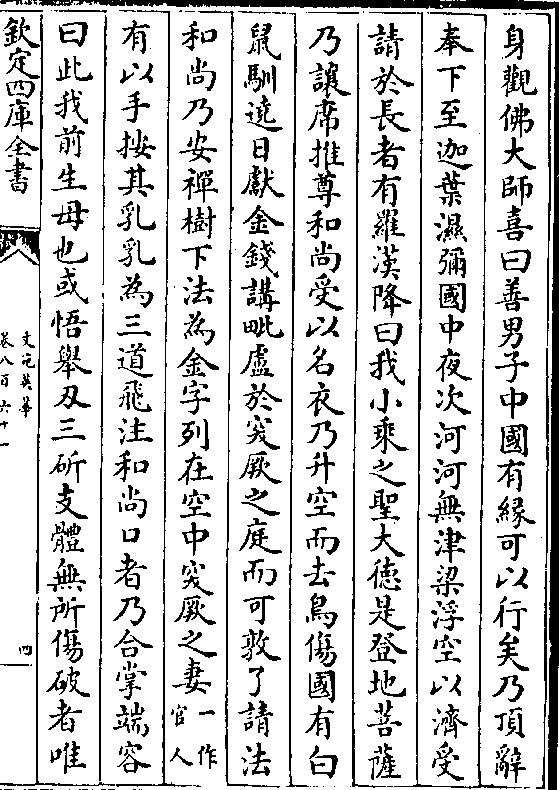 身觀佛大師喜曰善男子中國有緣可以行矣乃頂辭
奉下至迦葉濕彌國中夜次河河無津梁浮空以濟受
請於長者有羅漢降曰我小乘之聖大徳是登地菩薩
乃讓席推尊和尚受以名衣乃升空而去鳥傷國有白
䑕馴遶日獻金錢講毗盧於突厥之庭而可敦了請法
和尚乃安禪樹下法為金字列在空中突厥之妻一作官人
有以手按其乳乳為三道飛注和尚口者乃合掌端容
曰此我前生毋也或悟舉刄三斫支體無所傷破者唯
欽定四庫全書
文苑英華
卷八百六十一
四